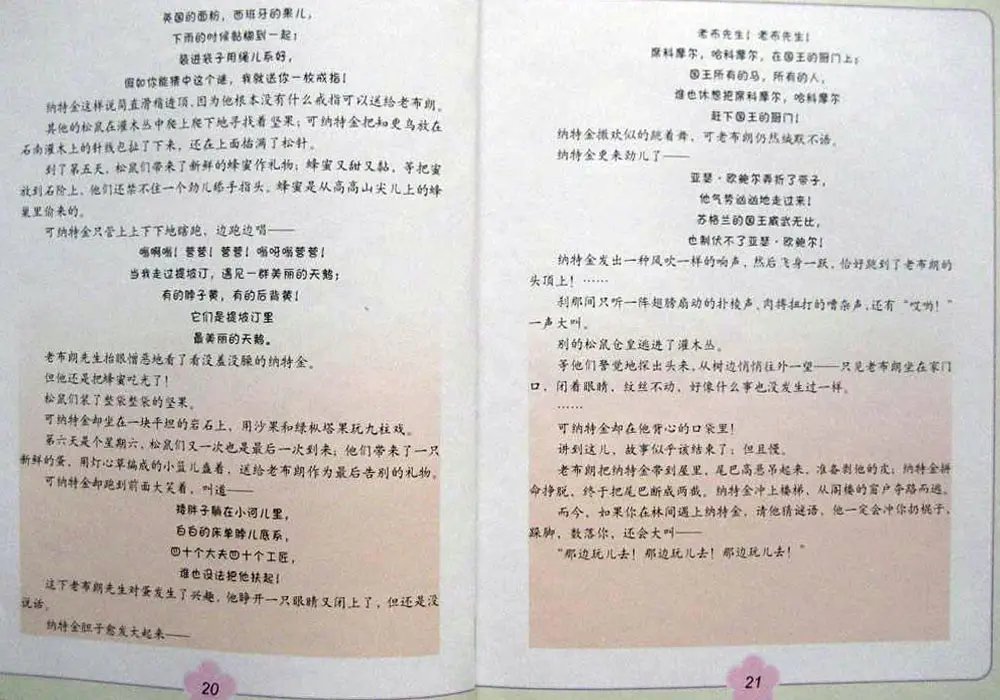 英国的面粉，西班牙的果儿，
下雨的时候黏糊到一起；
装进袋子用绳儿系好，
假如你能猜中这个谜，我就送你一枚戒指！
纳特金这样说简直滑稽透顶，因为他根本没有什么戒指可以送给老布朗。
其他的松鼠在灌木丛中爬上爬下地寻找着坚果；可纳特金把知更鸟放在
石南灌木上的针线包扯了下来，还在上面插满了松针。
到了第五天，松鼠们带来了新鲜的蜂蜜作礼物；蜂蜜又甜又黏，等把蜜
放到石阶上，他们还禁不住一个劲儿舔手指头。蜂蜜是从高高山尖儿上的蜂
巢里偷来的。
可纳特金只管上上下下地瞎跑，边跑边唱——
嗡啊嗡！营营！营营！嗡呀嗡营营！
当我走过提坡汀，遇见一群美丽的天鹅；
有的脖子黄，有的后背黄！
它们是提坡汀里
最美丽的天鹅。
老布朗先生抬眼憎恶地看了看没羞没臊的纳特金。
但他还是把蜂蜜吃光了！
松鼠们装了整袋整袋的坚果。
可纳特金却坐在一块平坦的岩石上，用沙果和绿枞塔果玩九柱戏。
第六天是个星期六，松鼠们又一次也是最后一次到来；他们带来了一只
新鲜的蛋，用灯心草编成的小篮儿盛着，送给老布朗作为最后告别的礼物。
可纳特金却跑到前面大笑着，叫道——
矮胖子躺在小河儿里，
白白的床单脖儿底系，
四十个大夫四十个工匠，
谁也没法把他扶起！
这下老布朗先生对蛋发生了兴趣，他睁开一只眼睛又闭上了，但还是没
说话。
纳特金胆子愈发大起来——
20
老布先生！老布先生！
席科摩尔，哈科摩尔，在国王的厨门上；
国王所有的马，所有的人，
谁也休想把席科摩尔，哈科摩尔
赶下国王的厨门！
纳特金撒欢似的跳着舞，可老布朗仍然缄默不语。
纳特金更来劲儿了——
亚瑟·欧鲍尔弄折了带子，
他气势汹汹地走过来！
苏格兰的国王威武无比，
也制伏不了亚瑟·欧鲍尔！
纳特金发出一种风吹一样的响声，然后飞身一跃，恰好跳到了老布朗的
头顶上！……
刹那间只听一阵翅膀扇动的扑棱声，肉搏扭打的嘈杂声，还有“哎哟！”
一声大叫。
别的松鼠仓皇逃进了灌木丛。
等他们警觉地探出头来，从树边悄悄往外一望——只见老布朗坐在家门
口，闭着眼睛，纹丝不动，好像什么事也没发生过一样。
……
可纳特金却在他背心的口袋里！
讲到这儿，故事似乎该结束了；但且慢。
老布朗把纳特金带到屋里，尾巴高悬吊起来，准备剥他的皮；纳特金拼
命挣脱，终于把尾巴断成两截，纳特金冲上楼梯，从阁楼的窗户夺路而逃。
而今，如果你在林间遇上纳特金，请他猜谜语，他一定会冲你扔棍子，
跺脚，数落你，还会大叫——
“那边玩儿去！那边玩儿去！那边玩儿去！”
21